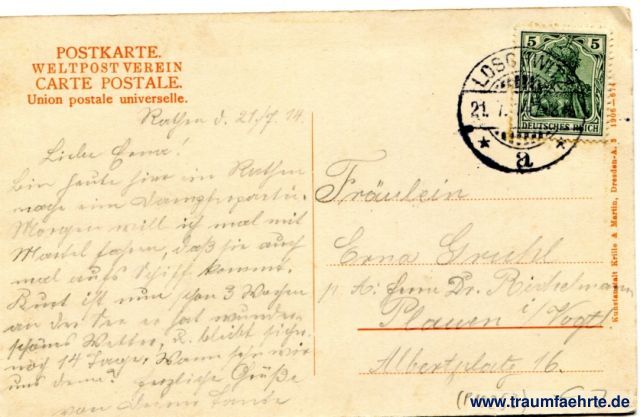 POSTKARTE.
WELTPOSTVEREIN
CARTE POSTALE.
Union postale universelle.
5 5
DEUTSCHES REICH
LOSCHWITZ
21. 7.
* a *
Rathen d. 21/7. 14.
Liebe Erna!
Bin heute hier in Rathen
mache ein Dampferpartie.
Morgen will ich mal mit
fahren, daß sie auch
mal aufs Schiff kommt.
Kurt ist nun schon 3 Wochen
an der See er hat wunder-
schönes Wetter, u. bleibt sich.
noch 14 Tage. Wann sehn wir
uns denn? herzliche Grüße
von Deiner Tante
Fräulein
Erna
Dr.
Plauen i/Vogtl
Albertplatz 16.
Kunstanstalt Krille & Martin, Dresden-A. 1906-614
www.traumfaehrte.de